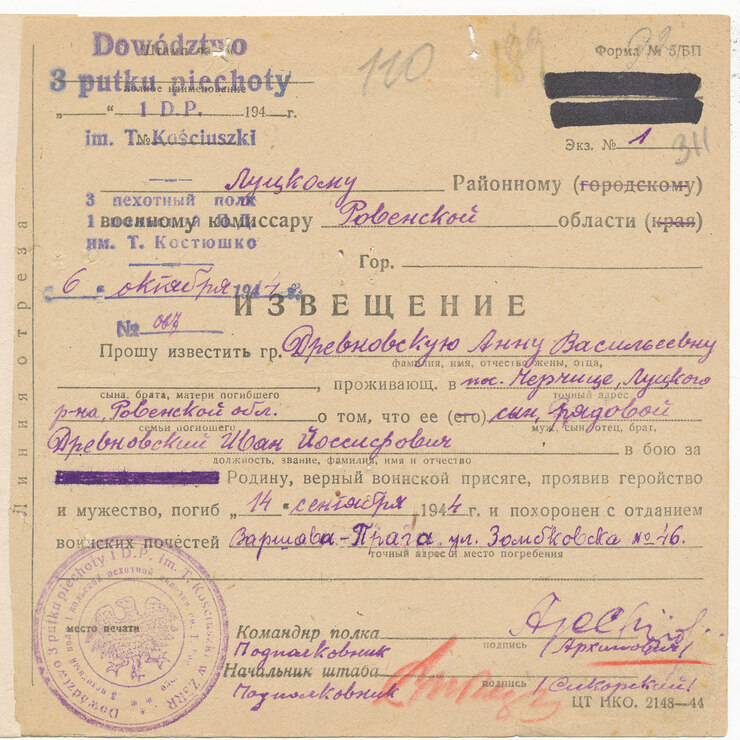 Dowództwo
Штамп части
3 pułku piechoty
полное наименование
„ “ 1 D.P. 194 г.
№
im. T. Kościuszki
110
189
92
Форма № 5/БП
Экз. № 1
311
Луцкому Районному (городскому)
3 пехотный полк
военному комиссару Ровенской области (края)
им. Т. Костюшко
Гор.
6 октября 1944 г.
ИЗВЕЩЕНИЕ
№ 007
Прошу известить гр. Древновскую Анну Васильевну
фамилия, имя, отчество жены, отца,
, проживающ. в пос. Черчище, Луцкого
сына, брата, матери погибшего
точный адрес
р-на, Ровенской обл. о том, что ее (его) сын, рядовой
семьи погибшего
муж, сын, отец, брат,
Древновский Иван Йоссифович в бою за
должность, звание, фамилия, имя и отчество
Родину, верный воинской присяге, проявив геройство
и мужество, погиб „14 “ сентября 1944 г. и похоронен с отданием
воинских почестей Варшава-Прага, ул. Зомбковска № 46.
точный адрес и место погребения
Линия отреза
Dowództwo 3 pułku piechoty 1 D.P. im. T. Kościuszki w ZSRR
место печати
Командир полка
Подполковник
подпись
/Архипович/
Начальник штаба
Подполковник
подпись
/Сикорский/
ЦТ НКО. 2148—44